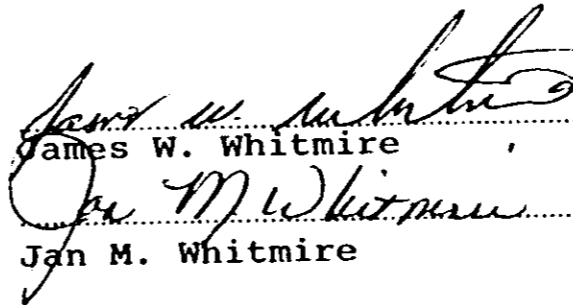 James W. Whitmire
James W. Whitmire
Jan M Whitmire
Jan M. Whitmire